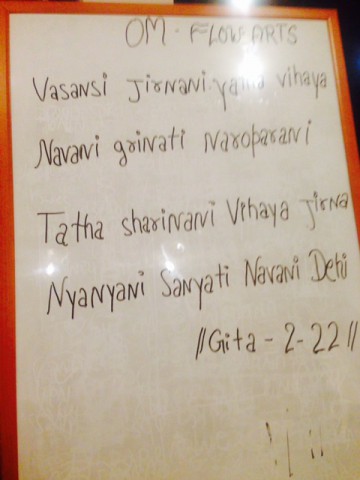 OM - FLOW ARTS
Vasansi Jirnani yatha vihaya
Navani grinati Naroparani
Tatha sharinani Vihaya Jirna
Nyanyani Sanyati Navani Dehi
//Gita - 2 - 22//